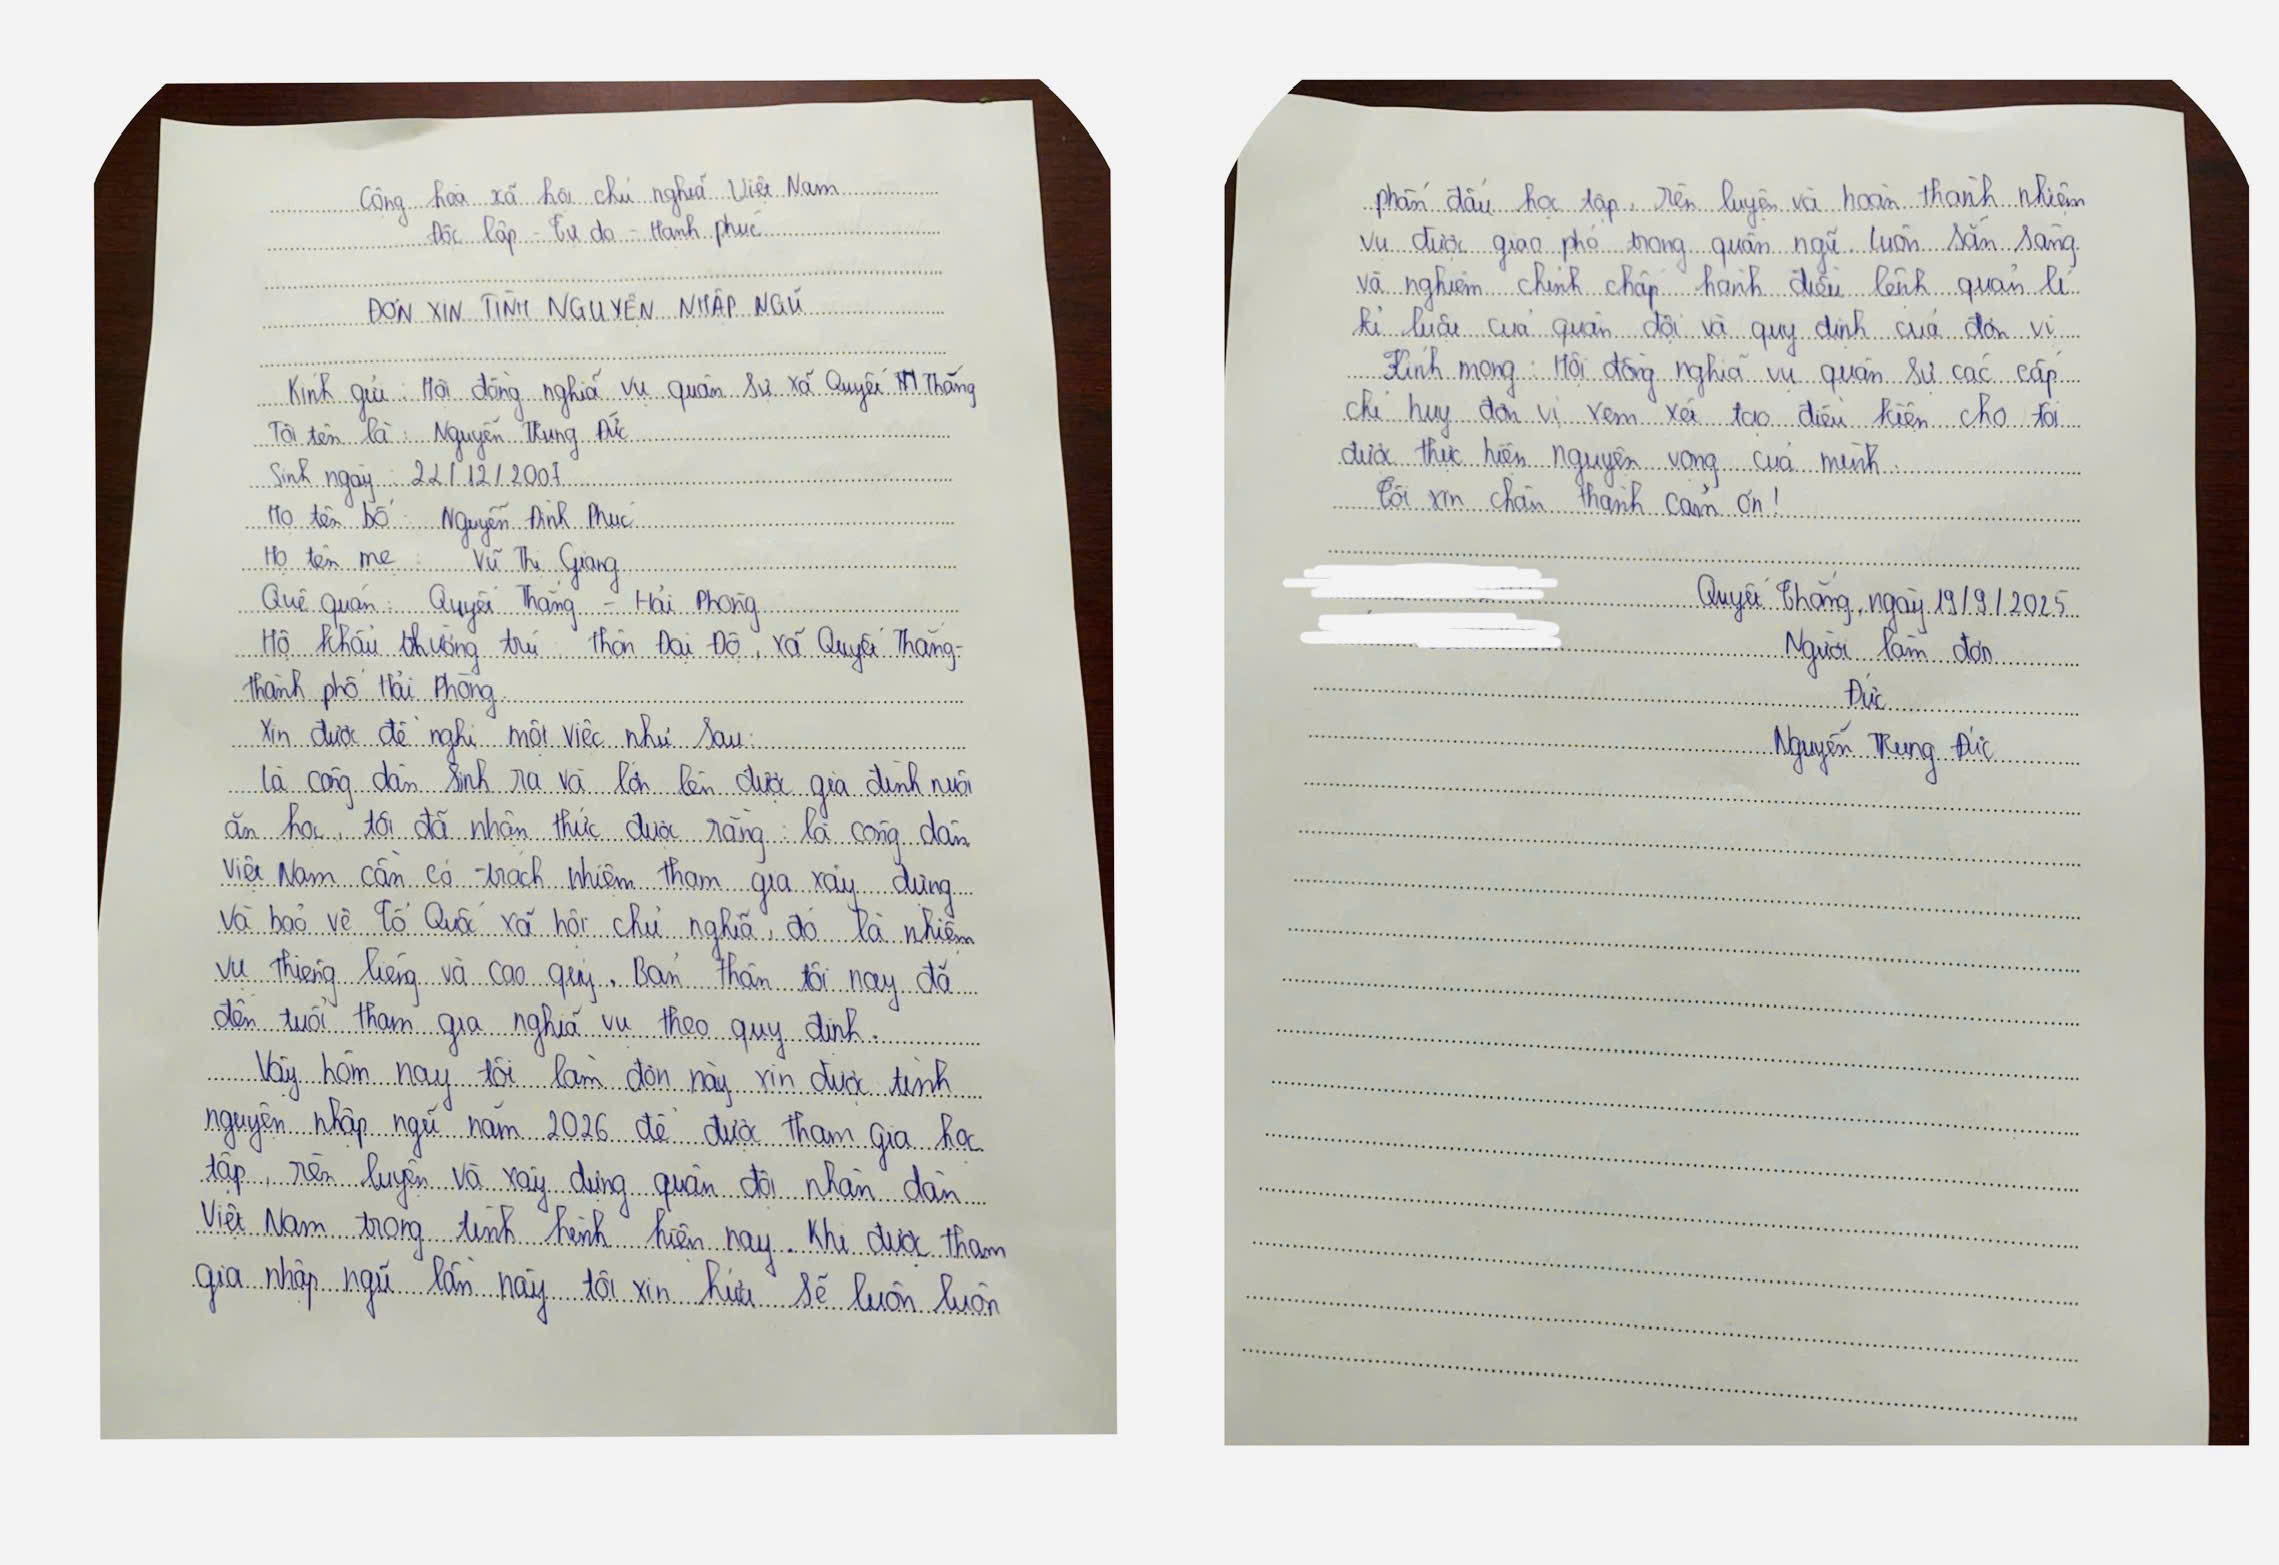 Cộng hoà xã hội chủ nghĩa Việt Nam
Độc lập - Tự do - Hạnh phúc
ĐƠN XIN TÌNH NGUYỆN NHẬP NGŨ
Kính gửi : Hội đồng nghĩa vụ quân sự xã Quyết Thắng
Tôi tên là : Nguyễn Trung Đức
Sinh ngày : 22/12/2007
Họ tên bố : Nguyễn Đình Phúc
Họ tên mẹ : Vũ Thị Giang
Quê quán : Quyết Thắng - Hải Phòng
Hộ khẩu thường trú : Thôn Đại Độ, xã Quyết Thắng-
thành phố Hải Phòng.
Xin được đề nghị một việc như sau:
Là công dân sinh ra và lớn lên được gia đình nuôi
ăn học, tôi đã nhận thức được rằng : là công dân
Việt Nam cần có trách nhiệm tham gia xây dựng
và bảo vệ Tổ Quốc xã hội chủ nghĩa, đó là nhiệm
vụ thiêng liêng và cao quý. Bản thân tôi nay đã
đến tuổi tham gia nghĩa vụ theo quy định.
Vậy hôm nay tôi làm đơn này xin được tình
nguyện nhập ngũ năm 2026 để được tham gia học
tập, rèn luyện và xây dựng quân đội nhân dân
Việt Nam trong tình hình hiện nay. Khi được tham
gia nhập ngũ lần này tôi xin hứa sẽ luôn luôn
phấn đấu học tập, rèn luyện và hoàn thành nhiệm
vụ được giao phó trong quân ngũ. Luôn sẵn sàng
và nghiêm chỉnh chấp hành điều lệnh quản lí
kỉ luật của quân đội và quy định của đơn vị
Kính mong : Hội đồng nghĩa vụ quân sự các cấp
chỉ huy đơn vị xem xét tạo điều kiện cho tôi
được thực hiện nguyện vọng của mình.
Tôi xin chân thành cảm ơn!
Quyết Thắng, ngày 19/9/2025
Người làm đơn
Đức
Nguyễn Trung Đức